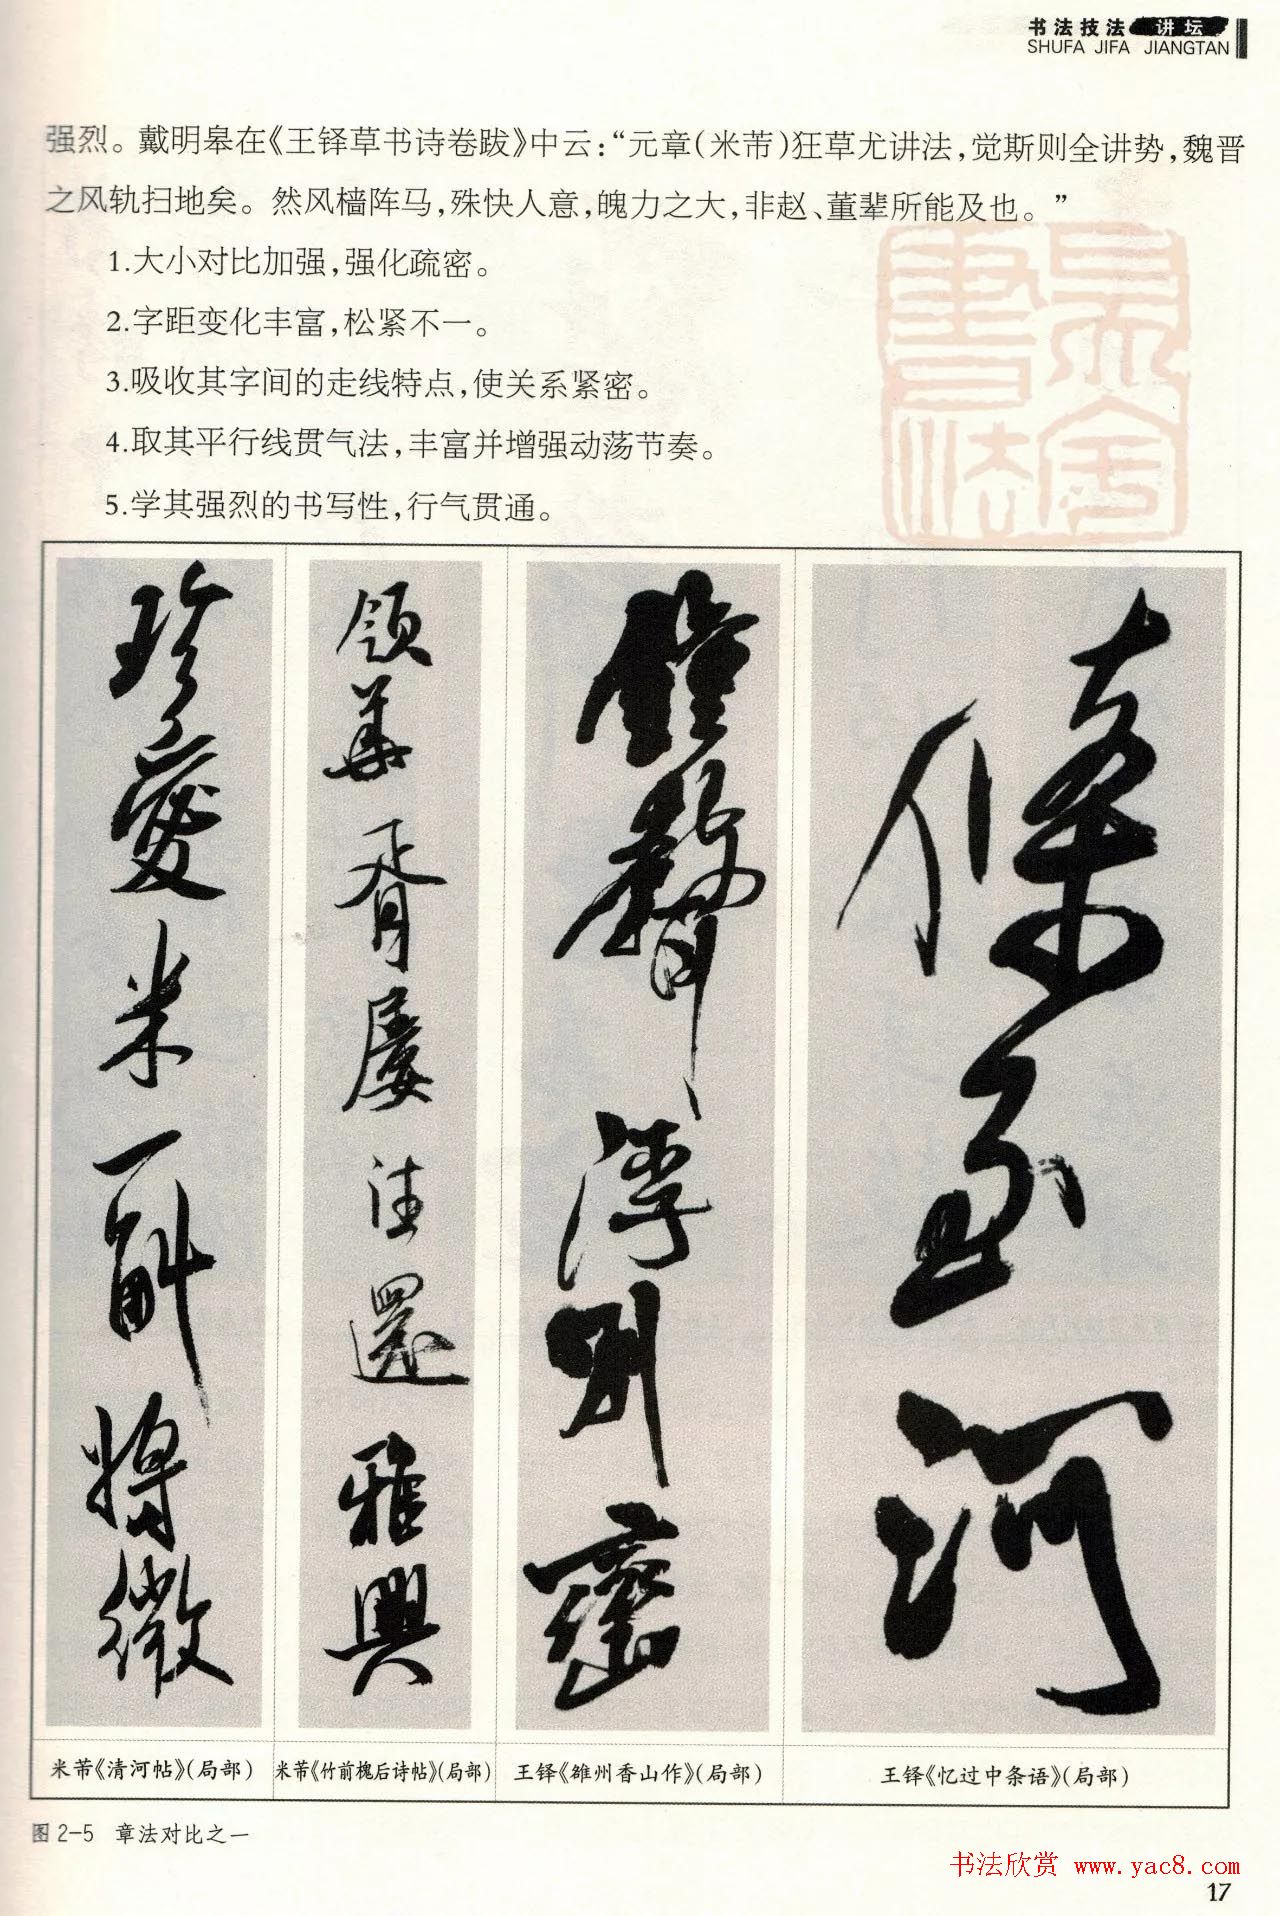 书法技法 讲坛
SHUFA JIFA JIANGTAN
强烈。戴明皋在《王铎草书诗卷跋》中云：“元章（米芾）狂草尤讲法，觉斯则全讲势，魏晋
之风轨扫地矣。然风樯阵马，殊快人意，魄力之大，非赵、董辈所能及也。”
1.大小对比加强，强化疏密。
2.字距变化丰富，松紧不一。
3.吸收其字间的走线特点，使关系紧密。
4.取其平行线贯气法，丰富并增强动荡节奏。
5.学其强烈的书写性，行气贯通。
珍愛米一斛將微
領華胥屢法還雅興
鐘聲浮別巒
條至河
米芾《清河帖》（局部）
米芾《竹前槐后诗帖》（局部）
王铎《雒州香山作》（局部）
王铎《忆过中条语》（局部）
图 2-5 章法对比之一
书法欣赏 www.yac8.com
17